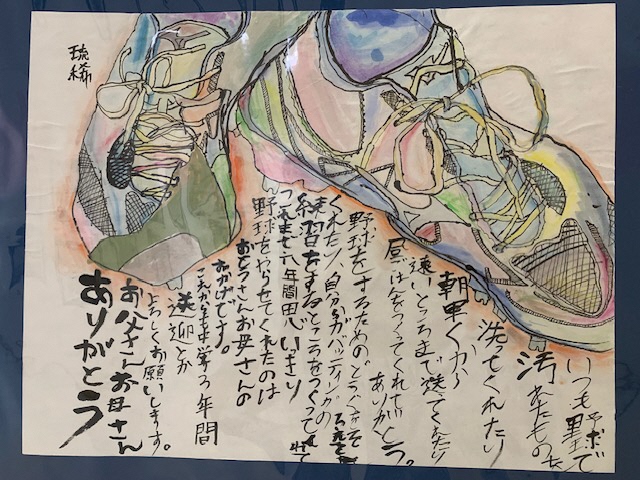 いつも野球で
汚れたものを
洗ってくれたり
朝早くから
遠いところまで送ってくれたり
昼ごはんをつくってくれて
ありがとう。
野球をするためのどうぐをそろえて
くれたり自分がバッティングの
練習をするところをつくってくれて
六年間思いっきり
野球をならせてくれたのは
おとうさんお母さんの
おかげです。
これからも中学3年間
送迎とか
よろしくお願いします。
お父さんお母さん
ありがとう
琉稀